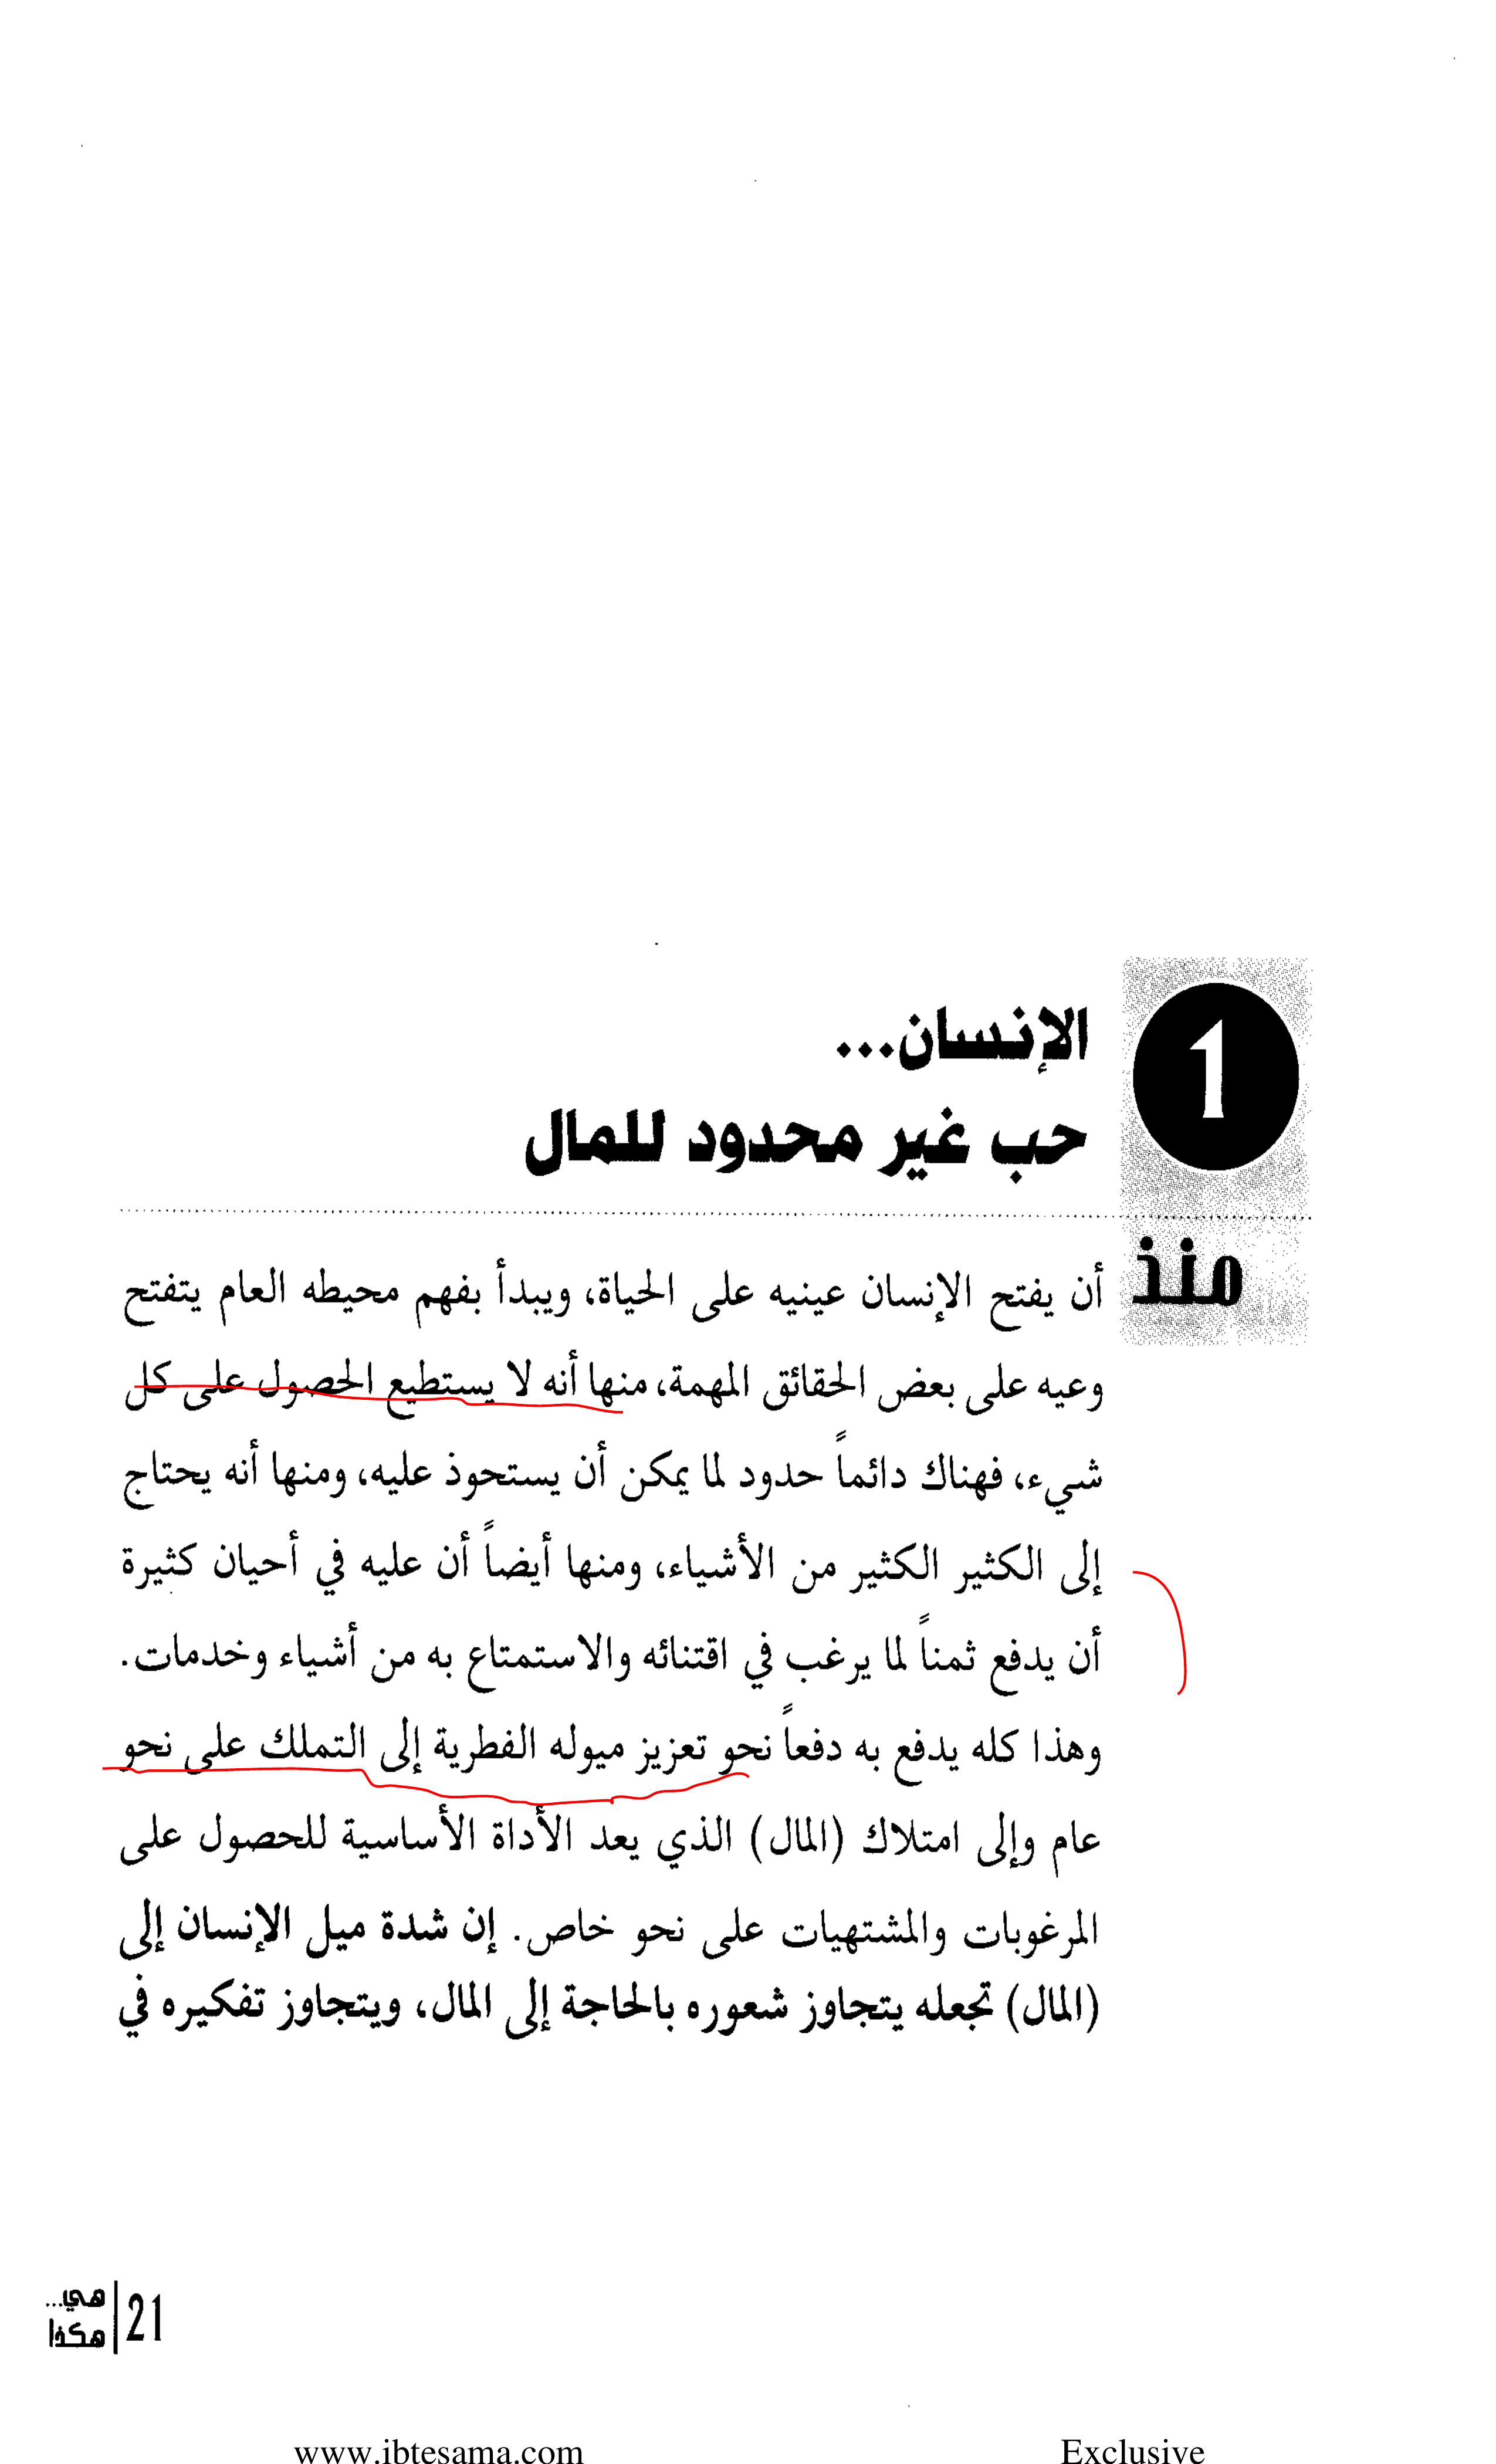 1
الإنسان...
حب غير محدود للمال
منذ أن يفتح الإنسان عينيه على الحياة، ويبدأ بفهم محيطه العام يتفتح
وعيه على بعض الحقائق المهمة، منها أنه لا يستطيع الحصول على كل
شيء، فهناك دائماً حدود لما يمكن أن يستحوذ عليه، ومنها أنه يحتاج
إلى الكثير الكثير من الأشياء، ومنها أيضاً أن عليه في أحيان كثيرة
أن يدفع ثمناً لما يرغب في اقتنائه والاستمتاع به من أشياء وخدمات.
وهذا كله يدفع به دفعاً نحو تعزيز ميوله الفطرية إلى التملك على نحو
عام وإلى امتلاك (المال) الذي يعد الأداة الأساسية للحصول على
المرغوبات والمشتهيات على نحو خاص. إن شدة ميل الإنسان إلى
(المال) تجعله يتجاوز شعوره بالحاجة إلى المال، ويتجاوز تفكيره في
21
هي...
هكذا
www.ibtesama.com
Exclusive